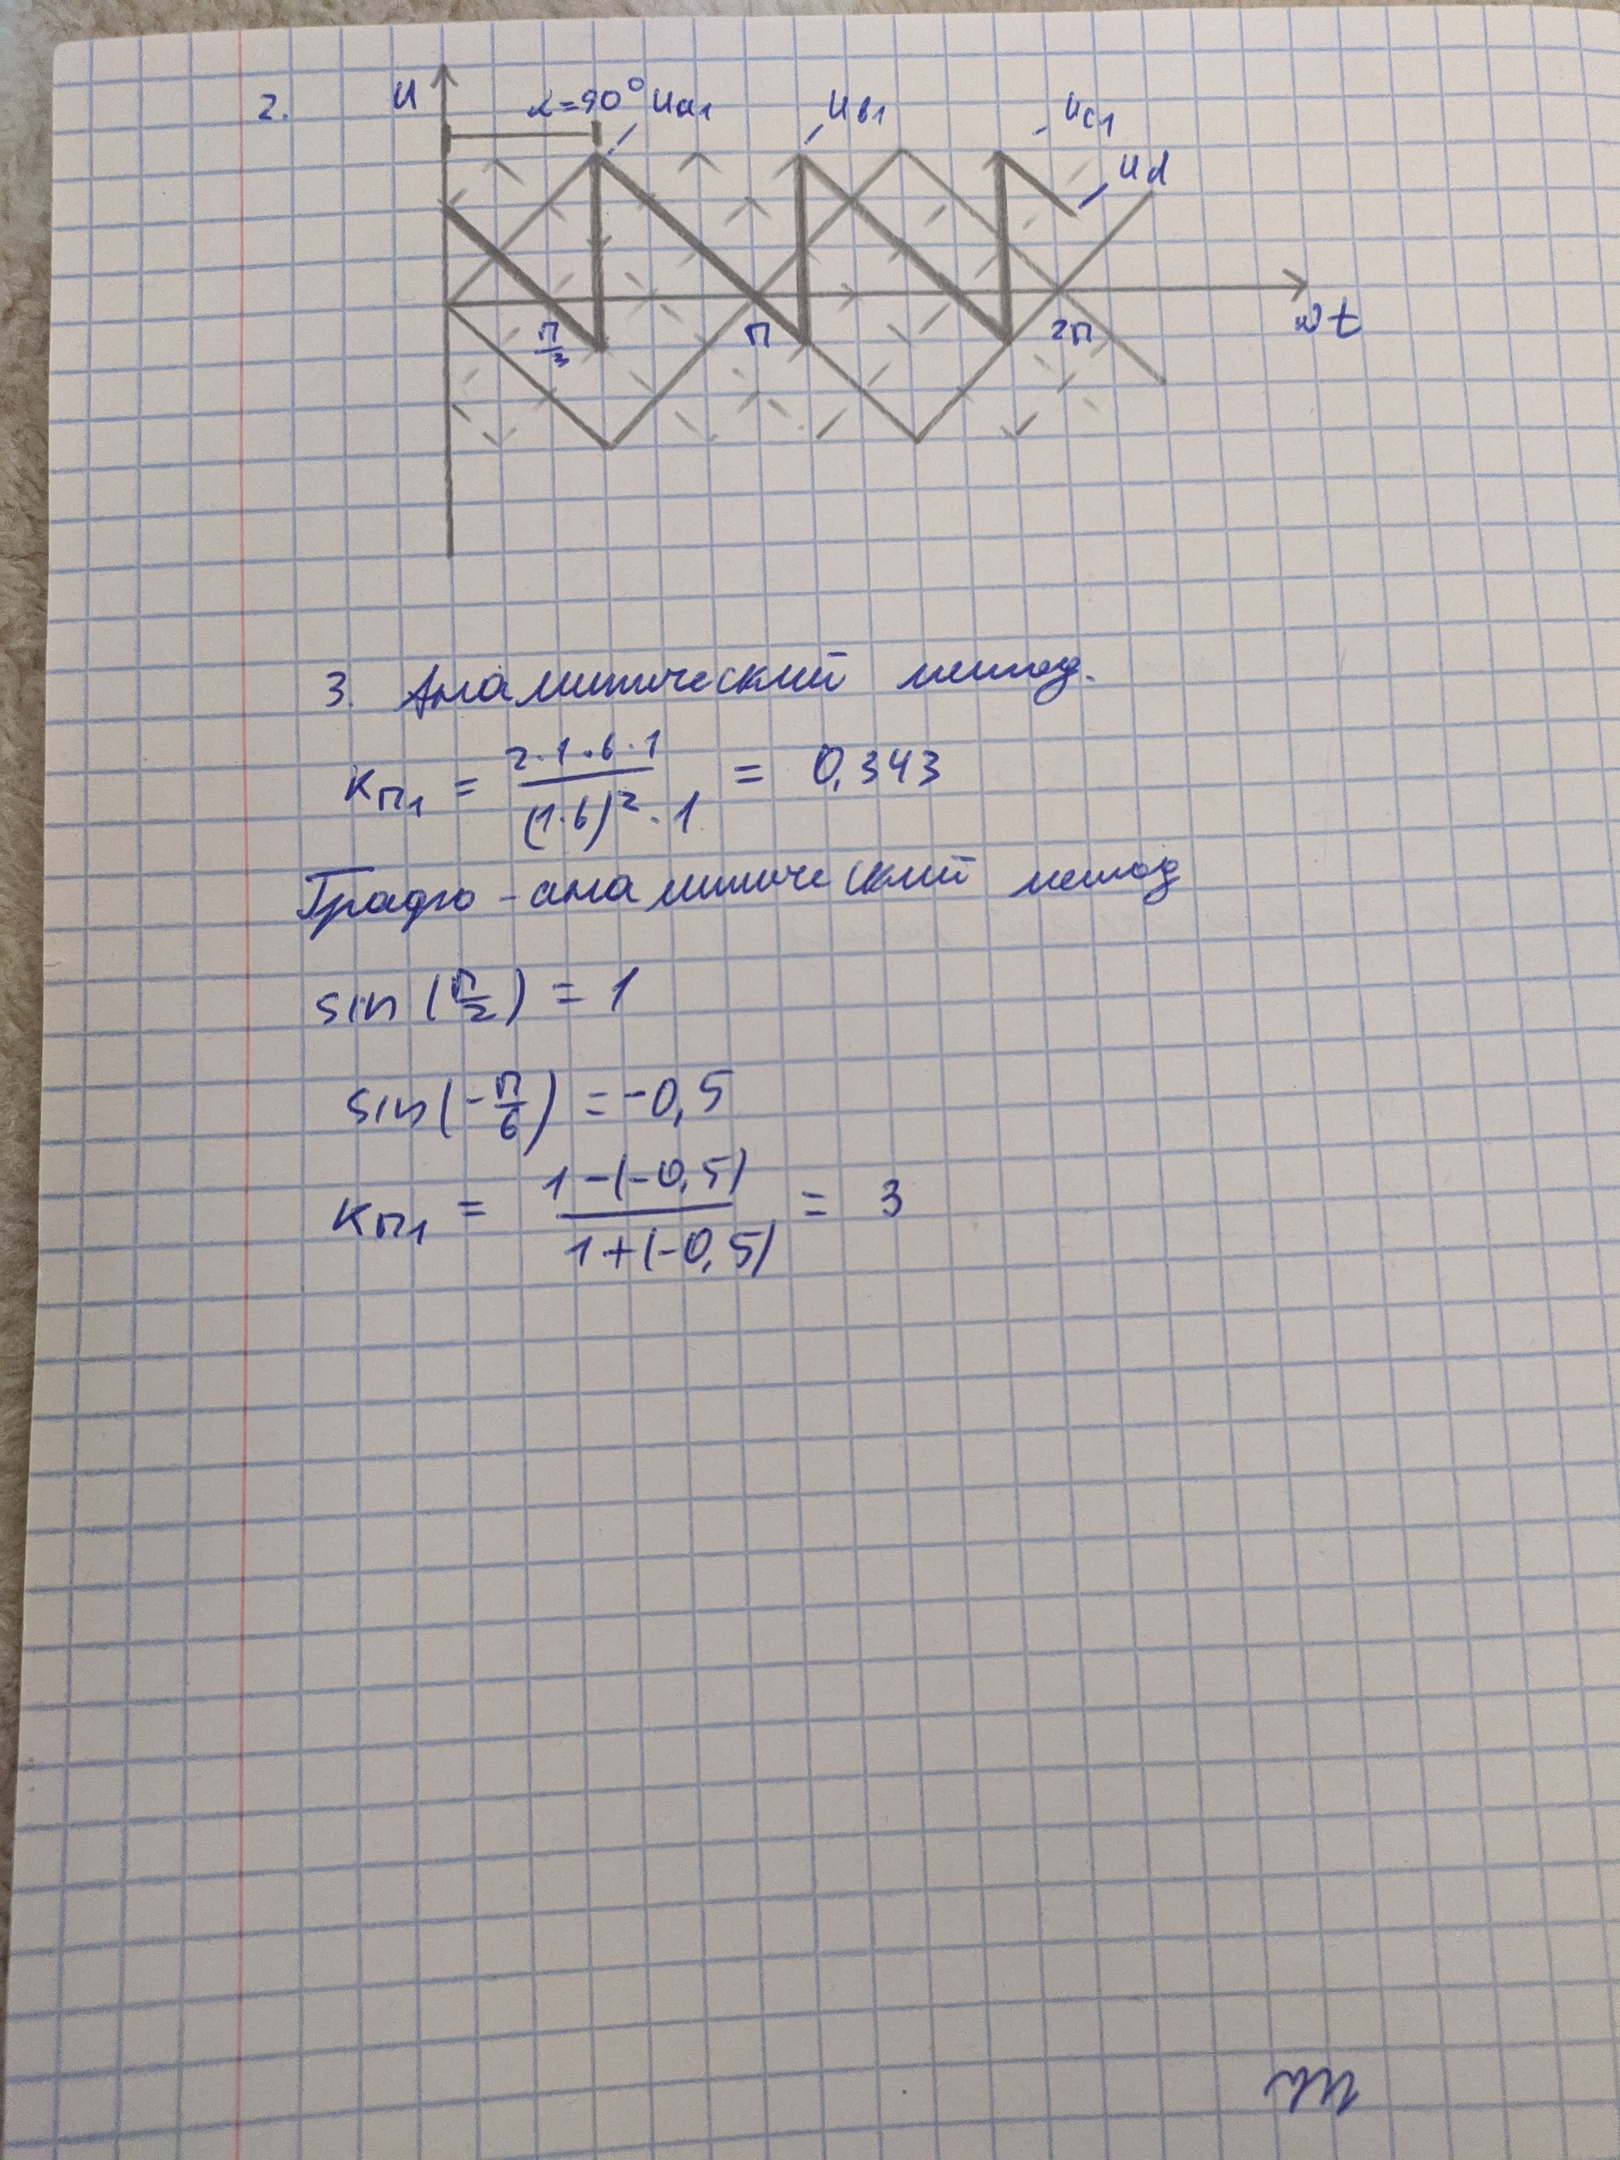 2.
u
α=90° Ua1
Uв1
Uc1
Ud
п/3
п
2п
ωt
3. Аналитический метод.
Kп1 = 2·1·6·1 / (1·6)²·1 = 0,343
Графо-аналитический метод
sin(п/2) = 1
sin(-п/6) = -0,5
Kп1 = 1-(-0,5) / 1+(-0,5) = 3